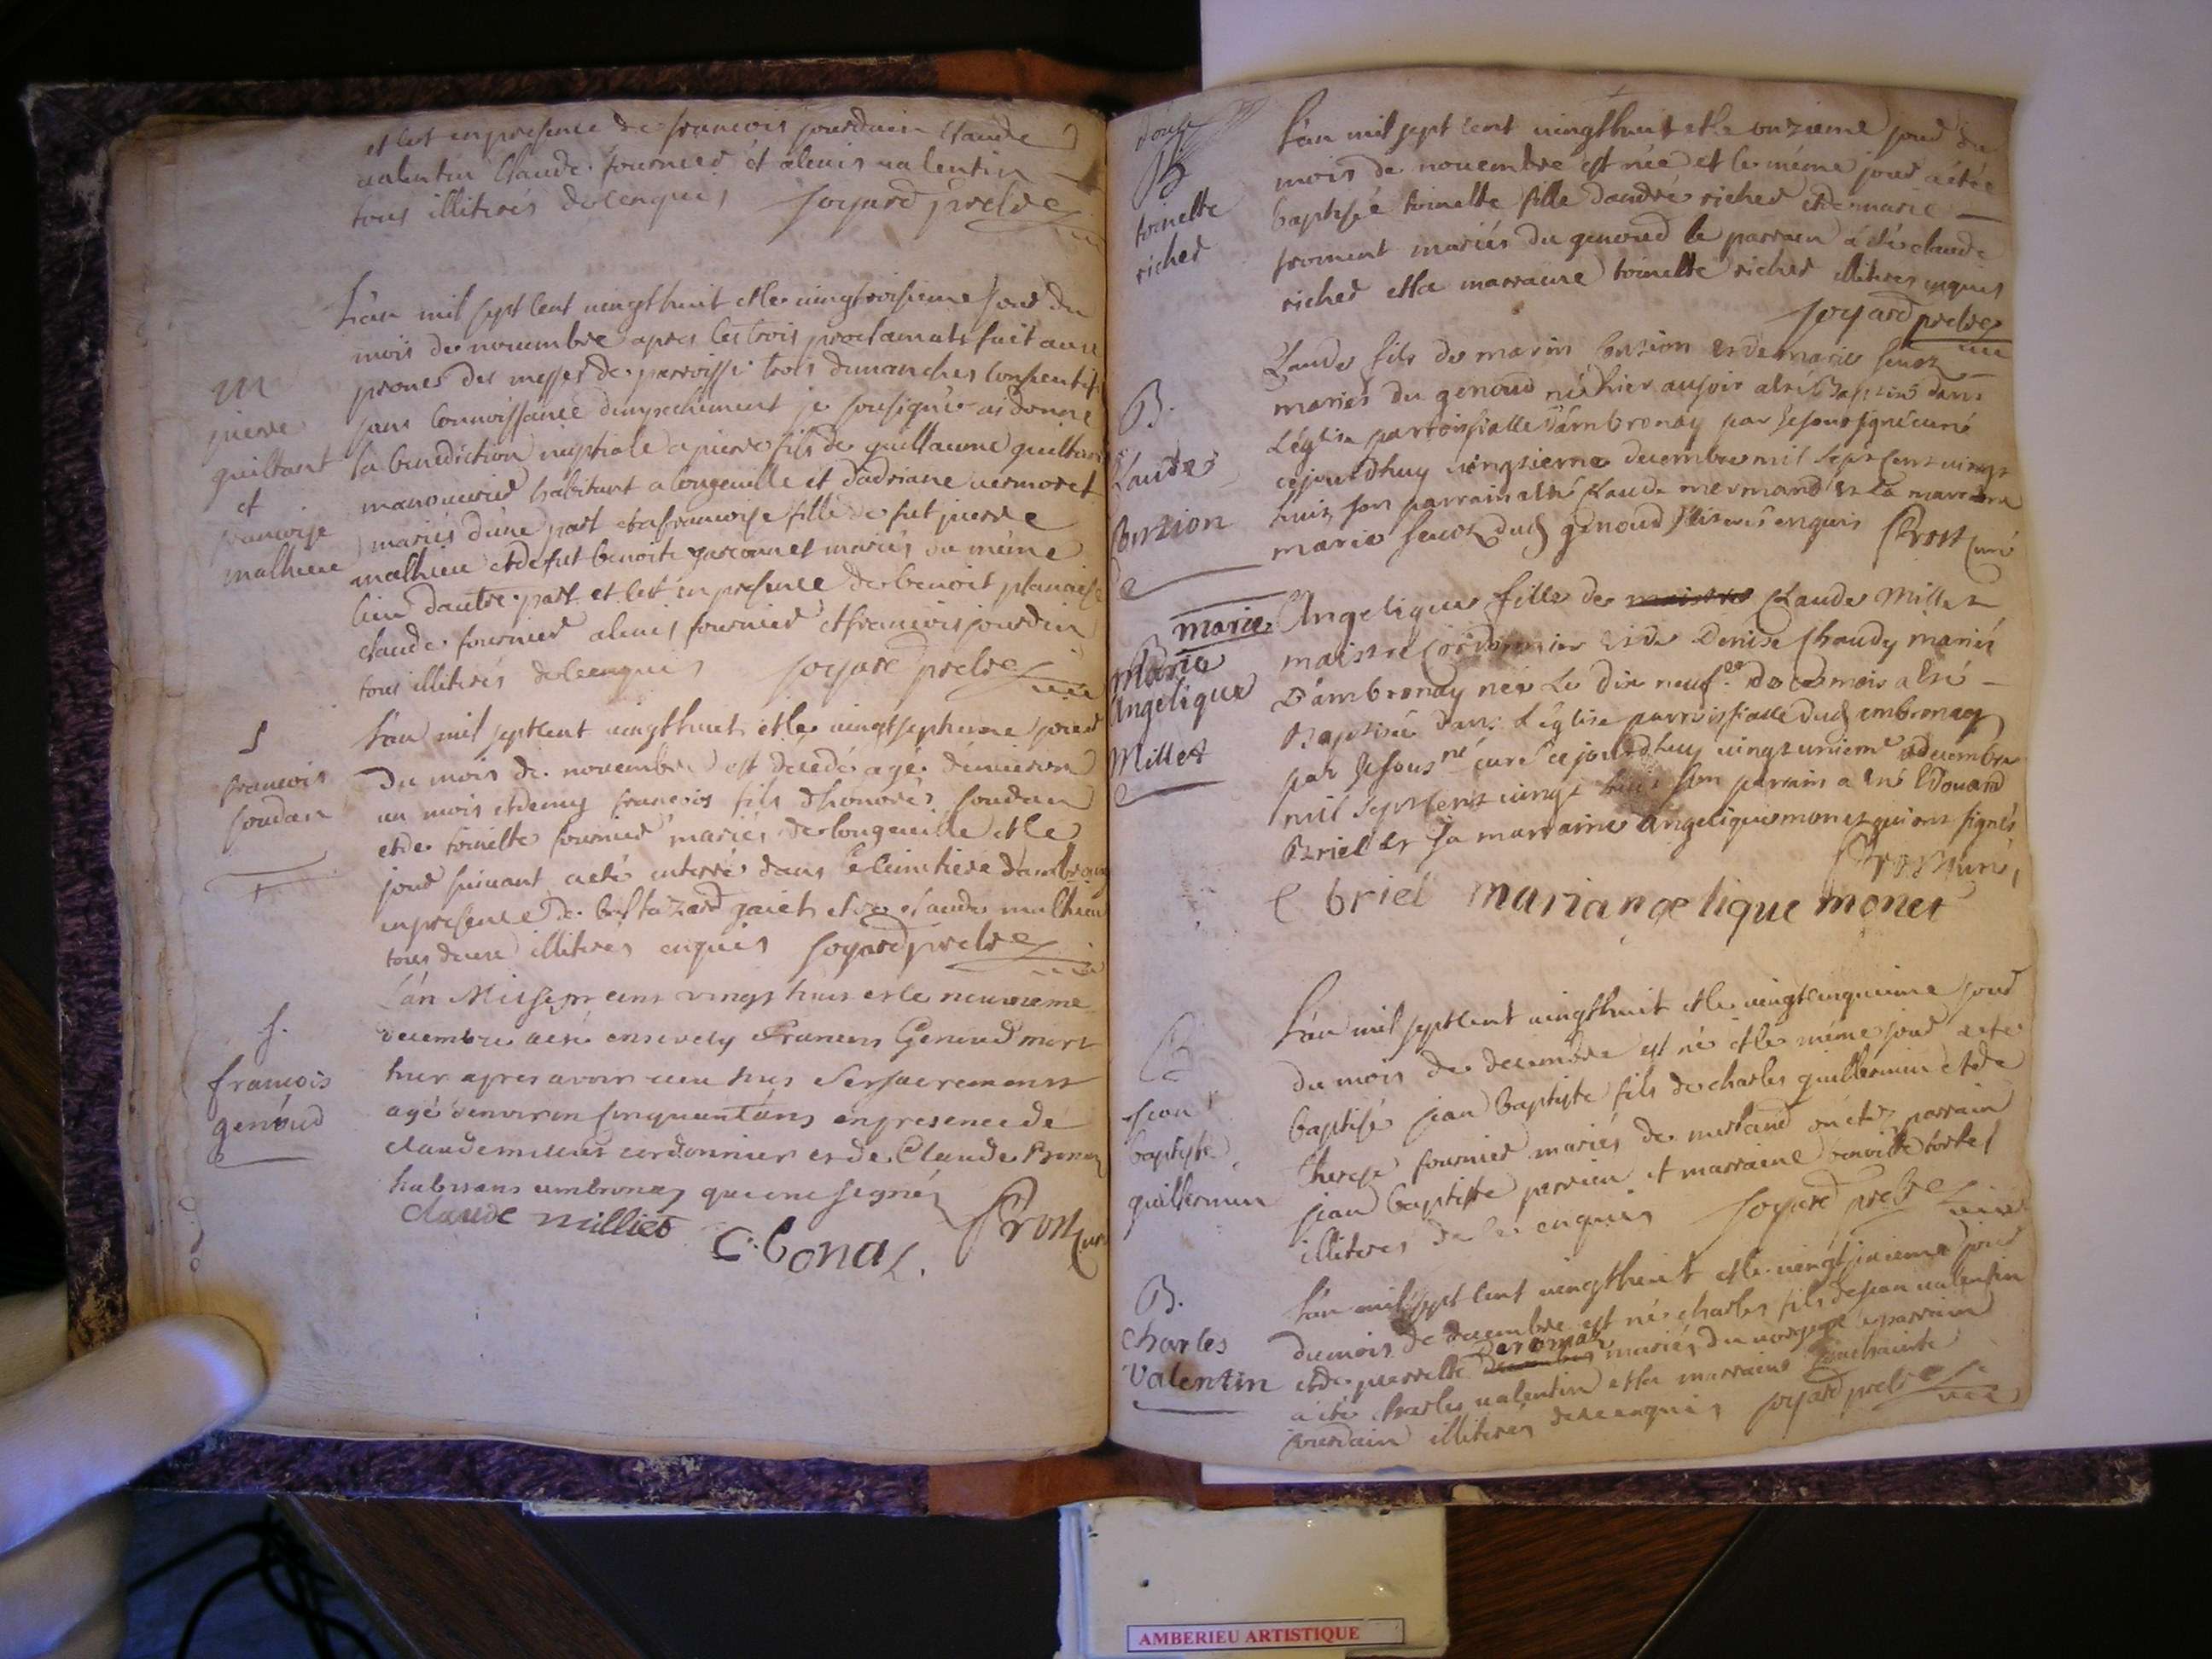 et cest en presence de francois jourdain Claude
valentin Claude fournier et alexis valentin
tous illiterés de ce enquis soyard prestre
L'an mil sept cent vingthuit et le vingtroisieme jour du
mois de novembre apres les trois proclamats fait aux
prones des messes de parroisse trois dimanches consentifs
sans connoissance dempechement je sousigné ai donné
la benediction nuptiale a pierre fils de guillaume quiltant
manouvrier habitant a longeville et dadriane vermoret
mariés d'une part et a francoise fille de fut pierre
mathieu et de fut benoite mariés du même
lieu dautre part et cest en presence de benoit
claude fournier alexis fournier et francois jourdin
tous illiterés de ce enquis soyard prestre
M
pierre
quiltant
et
francoise
mathieu
L'an mil sept cent vingthuit et le vingtseptieme jour
du mois de novembre est décédé agé d'environ
un mois et demy francois fils d'honoré soudan
et de toinette fournier mariés de longeville et le
jour suivant a eté enterré dans le cimetiere d'ambronay
en presence de baltazard et de claude mathieu
tous deux illiterés enquis soyard prestre
S
francois
soudan
L'an Mil sept cent vingt huit et le neuvieme
decembre a esté ensevely Francois Genoud mort
hier apres avoir receu tous ses sacrements
agé d'environ cinquant'ans en presence de
claude millet cordonnier et de Claude Bonaz
habitans ambronay qui ont signés
claude milliet C. bonaz. Prost curé
S.
francois
genoud
douze
B
toinette
richer
L'an mil sept cent vingthuit et le onzieme jour du
mois de novembre est née et le même jour a été
baptisée toinette fille dandré richer et de marie
froment mariés du genoud le parrain a été claude
richer et la marraine toinette richer illiterés enquis
soyard prestre
B.
Claude
Claude fils de marin et de marie
mariés du genoud né hier au soir a esté Baptisé dans
L'église parroissialle d'ambronay par Je soussigné curé
cejourdhuy decembre mil sept cent vingt
huit son parrain a esté Claude mermand et La marraine
marie dud genoud illiterés enquis Prost curé
marie
Marie
Angelique
Millet
Angelique fille de Claude Millet
maistre Cordonnier et de Denise Chaudy mariés
D'ambronay née Le dix neuf de ce mois a esté
Baptisée dans L'église parroissialle dud ambronay
par Je sousné curé cejourdhuy vingt unieme decembre
mil sept cent vingt huit son parrain a esté Edouard
Briel et Sa marraine angelique monet qui ont signés
Prost curé
e briel mariangelique monet
B
jean
baptiste
guillermin
L'an mil sept cent vingthuit et le vingtcinquieme jour
du mois de decembre est né et le même jour a eté
baptisé jean baptiste fils de charles guillermin et de
therese fournier mariés de merland ont été parrain
jean baptiste et marraine benoitte tortel
illiterés de ce enquis soyard prestre
B.
Charles
Valentin
L'an mil sept cent vingthuit et le vingtsixieme jour
du mois de decembre est né charles fils de jean valentin
et de pierrette mariés du le parrain
a été charles valentin et la marraine
jourdain illiterés de ce enquis soyard prestre
AMBERIEU ARTISTIQUE